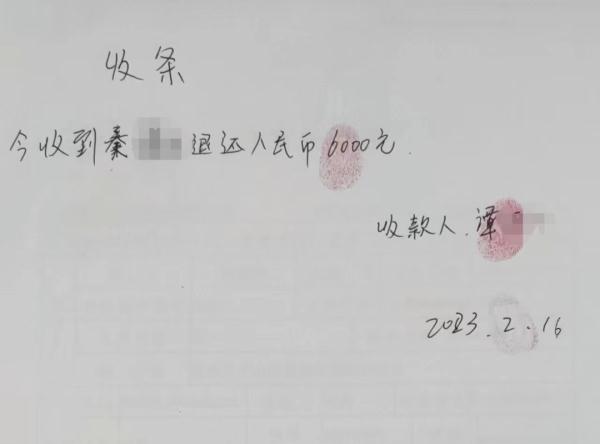 收条
今收到秦 退还人民币6000元.
收款人.谭
2023.2.16